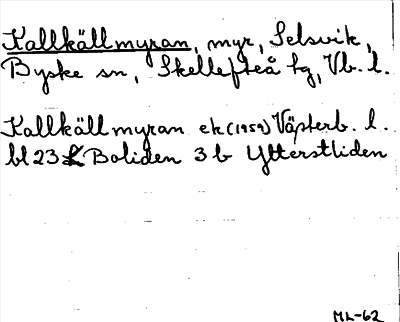 Kallkällmyran, myr, Selsvik,
Byske sn, Skellefteå tg, Vb. l.
Kallkällmyran ek (1959) Västerb. l.
bl 23 K Boliden 3 b Ytterstliden
ML-62